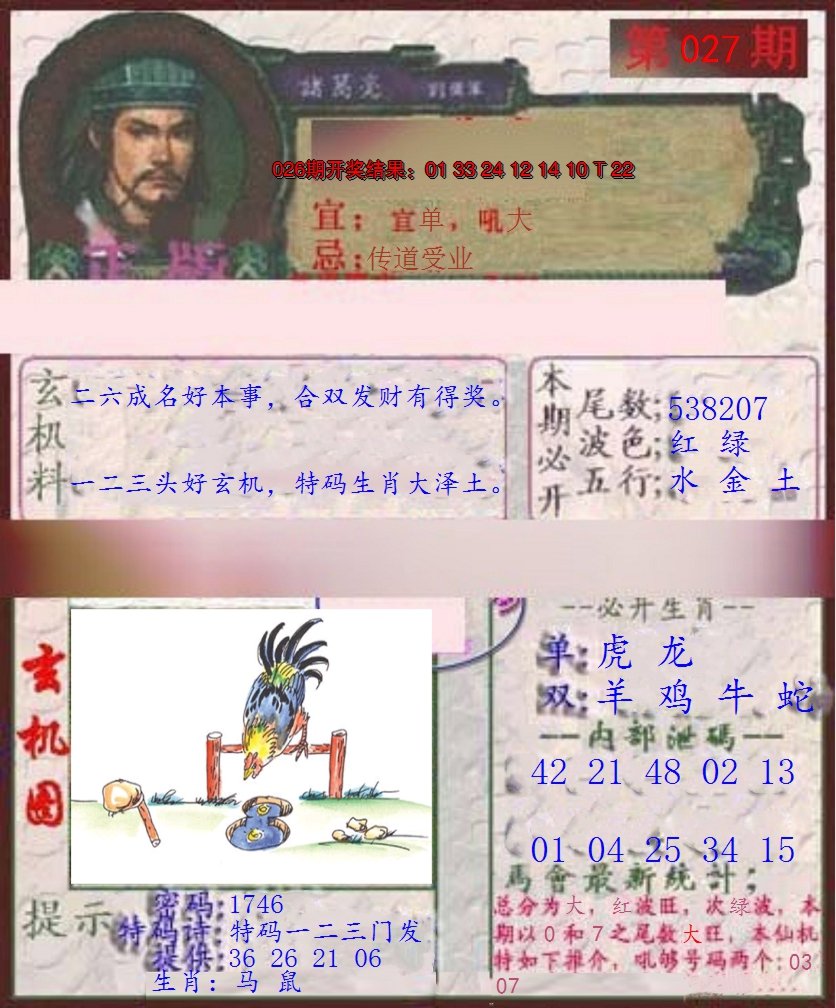 第 027 期
諸葛亮
026期开奖结果：01 33 24 12 14 10 T 22
宜：宜单，吼大
忌：传道受业
正版
玄机料
二六成名好本事，合双发财有得奖。
一二三头好玄机，特码生肖大泽土。
本期必开
尾数：538207
波色：红 绿
五行：水 金 土
玄机图
--必开生肖--
单：虎 龙
双：羊 鸡 牛 蛇
一内部泄碼一
42 21 48 02 13
01 04 25 34 15
馬會最新統計；
总分为大，红波旺，次绿波，本
期以0和7之尾数大旺，本仙机
特如下推介，吼够号码两个:03
07
提示
密码:1746
特码诗:特码一二三门发
提供:36 26 21 06
生肖：马 鼠